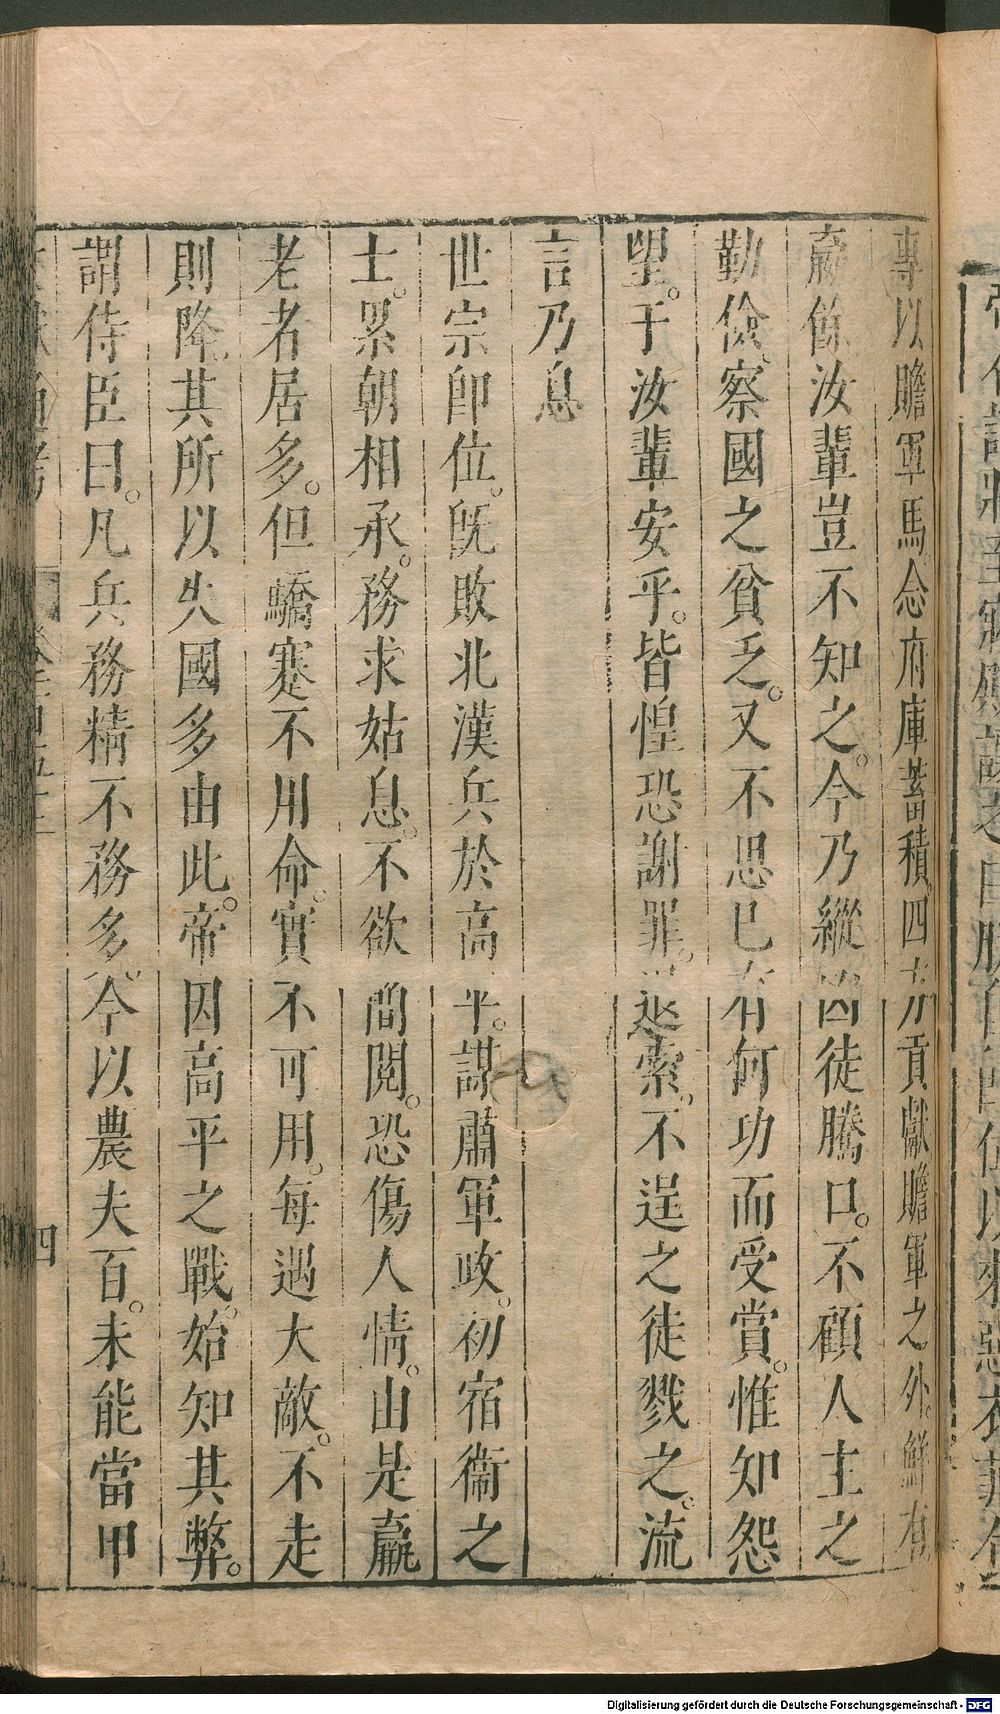 專以贍軍馬。念府庫蓄積。四方貢獻贍軍之外。鮮有
羸餘汝輩豈不知之。今乃縱凶徒騰口。不顧人主之
勤儉。察國之貧乏。又不思已有何功而受賞。惟知怨
望。于汝輩安乎。皆惶恐謝罪。退索。不逞之徒戮之。流
言乃息
世宗即位。旣敗北漢兵於高平。謀肅軍政。初宿衞之
士。累朝相承。務求姑息。不欲簡閱。恐傷人情。由是羸
老者居多。但驕蹇不用命。實不可用。每遇大敵。不走
則降。其所以失國多由此。帝因高平之戰。始知其弊。
謂侍臣曰。凡兵務精不務多。今以農夫百。未能當甲
通考
四
Digitalisierung gefördert durch die Deutsche Forschungsgemeinschaft - DFG